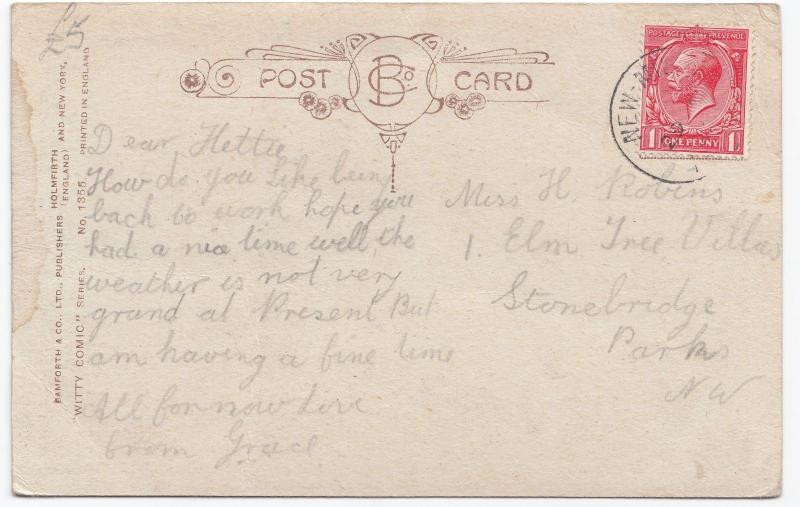 £5
POST CARD
B Co.
POSTAGE REVENUE
1 ONE PENNY 1
NEW-M
Dear Hettie
How do you like being
back to work hope you
had a nice time well, the
weather is not very
grand at Present But
am having a fine time
All for now Love
from Grace
Miss H. Robins
1. Elm Tree Villas
Stonebridge
Park
NW
BAMFORTH & CO., LTD., PUBLISHERS HOLMFIRTH (ENGLAND) AND NEW YORK.
"WITTY COMIC" SERIES. No. 1355 PRINTED IN ENGLAND